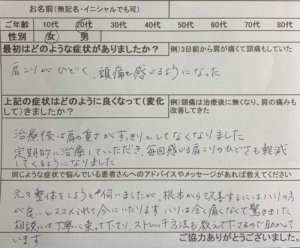 お名前(無記名・イニシャルでも可)
ご年齢 10代 20代 30代 40代 50代 60代 70代 80代
性別 女 男
最初はどのような症状がありましたか？ 例)3日前から肩が痛くて頭痛もしていた
肩こりがひどく、頭痛も感いるようになった
上記の症状はどのように良くなって(変化して)きましたか？ 例)頭痛は治療後に無くなり、肩の痛みも改善してきた
治療後は肩の重さがすっきりとしてなくなりました
定期的に治療していただき、毎回感いる肩こりのひどさも軽減
してくるようになりました
同じような症状で悩んでいる患者さんへのアドバイスやメッセージがあれば教えてください
元々整体をしようと伺いましたが、根本から改善するにはハリの方
が良いとススメられて今にいたります ハリは全く痛くなくて驚きました
相談には丁寧に乗って下さり、ストレッチ方法も教えて下さるので助かって
います
ご協力ありがとうございました。